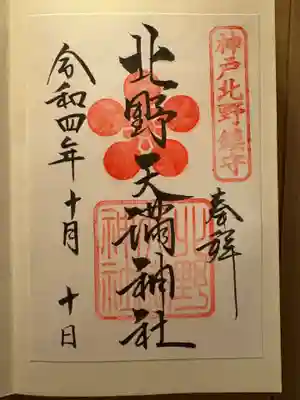 神戸北野鎮守
奉拝
北野天満神社
北野
神社
令和四年十月十日